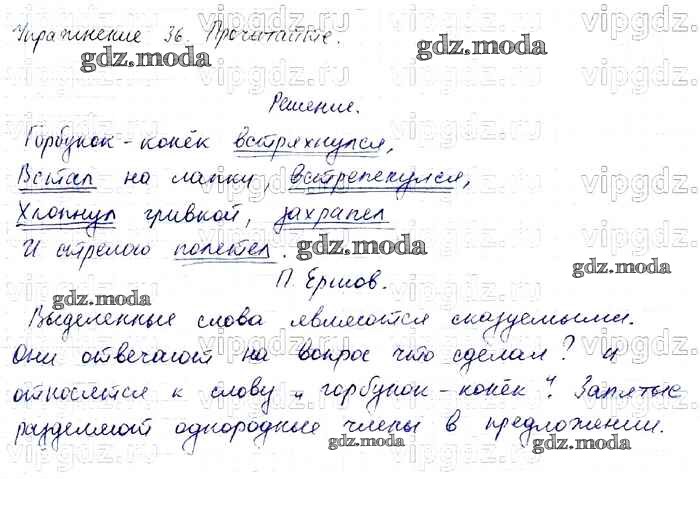 Упражнение 36. Прочитайте.
Решение.
Горбунок-конёк встряхнулся,
Встал на лапки, встрепенулся,
Хлопнул гривкой, захрапел
И стрелою полетел.
П. Ершов.
Выделенные слова являются сказуемыми.
Они отвечают на вопрос что сделал? и
относятся к слову „горбунок-конёк". Запятые
разделяют однородные члены в предложении.
gdz.moda
vipgdz.ru